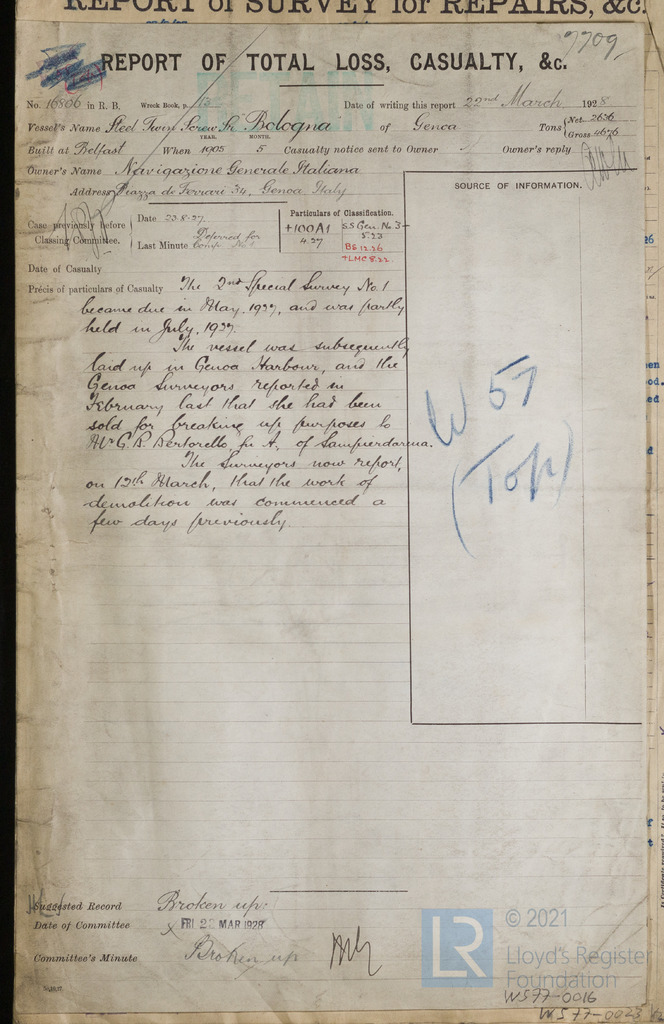 REPORT of SURVEY for REPAIRS, &c.
7709
REPORT OF TOTAL LOSS, CASUALTY, &c.
No. 16806 in R. B. Wreck Book, p. 13 Date of writing this report 22nd March 1928
Vessel's Name Steel Twin Screw Sr. "Bologna" of Genoa Tons Net 2636 Gross 4676
YEAR. MONTH.
Built at Belfast When 1905 5 Casualty notice sent to Owner Owner's reply
Owner's Name Navigazione Generale Italiana
Address Piazza de Ferrari 34, Genoa Italy
SOURCE OF INFORMATION.
Case previously before Classing Committee.
Date 23.8.27.
Last Minute Deferred for Comp. No. 1
Particulars of Classification.
+100A1 SS Gen. No. 3-
4.27 5.23
BS 12.26
+LMC 8.22
Date of Casualty
Précis of particulars of Casualty The 2nd Special Survey No. 1
became due in May, 1927, and was partly
held in July, 1927.
The vessel was subsequently
laid up in Genoa Harbour, and the
Genoa Surveyors reported in
February last that she had been
sold for breaking up purposes to
Mr G. B. Bertorello fu A. of Sampierdarena.
The Surveyors now report,
on 12th March, that the work of
demolition was commenced a
few days previously.
W 57
(Top)
Suggested Record Broken up.
Date of Committee FRI 23 MAR 1928
Committee's Minute Broken up
LR
© 2021
Lloyd's Register
Foundation
WS77-0016
WS77-0023